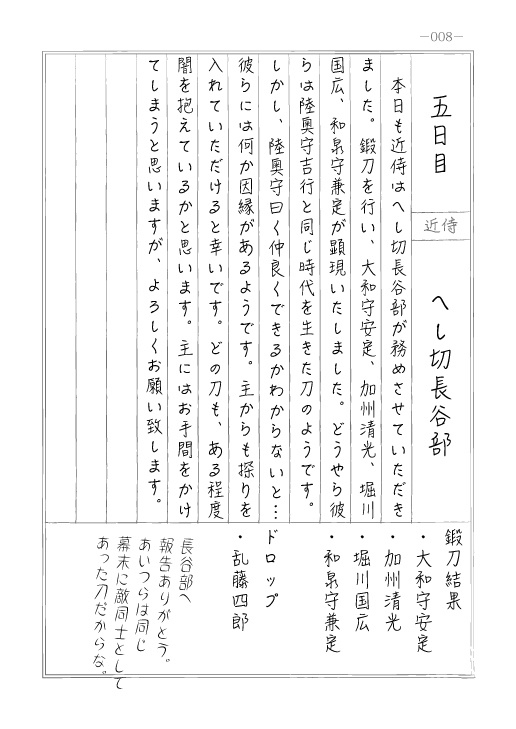 －008－
五日目
近侍
へし切長谷部
本日も近侍はへし切長谷部が務めさせていただき
ました。鍛刀を行い、大和守安定、加州清光、堀川
国広、和泉守兼定が顕現いたしました。どうやら彼
らは陸奥守吉行と同じ時代を生きた刀のようです。
しかし、陸奥守曰く仲良くできるかわからないと…
彼らには何か因縁があるようです。主からも探りを
入れていただけると幸いです。どの刀も、ある程度
闇を抱えているかと思います。主にはお手間をかけ
てしまうと思いますが、よろしくお願い致します。
鍛刀結果
・大和守安定
・加州清光
・堀川国広
・和泉守兼定
ドロップ
・乱藤四郎
長谷部へ
報告ありがとう。
あいつらは同じ
幕末に敵同士として
あった刀だからな。